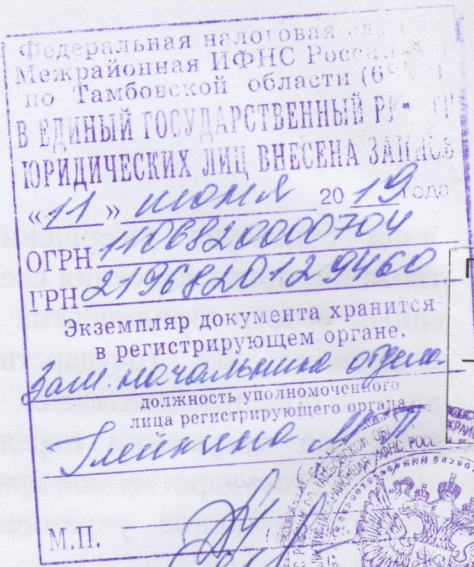 Федеральная налоговая служба
Межрайонная ИФНС России
по Тамбовской области
В ЕДИНЫЙ ГОСУДАРСТВЕННЫЙ
ЮРИДИЧЕСКИХ ЛИЦ ВНЕСЕНА ЗАПИСЬ
«11» июня 2019 года
ОГРН 1106820000704
ГРН 2196820129460
Экземпляр документа хранится
в регистрирующем органе.
Зам. начальника отдела
должность уполномоченного
лица регистрирующего органа
М.П.